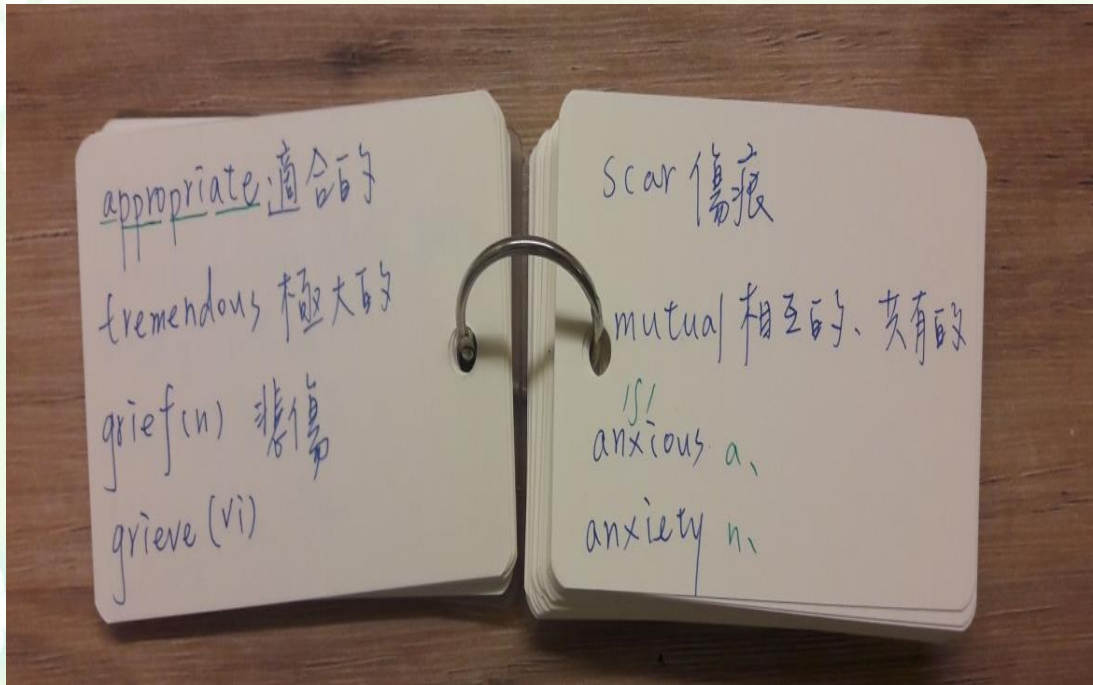 appropriate 適合的
tremendous 極大的
grief(n) 悲傷
grieve(vi)
scar 傷痕
mutual 相互的、共有的
/ʃ/
anxious a、
anxiety n、